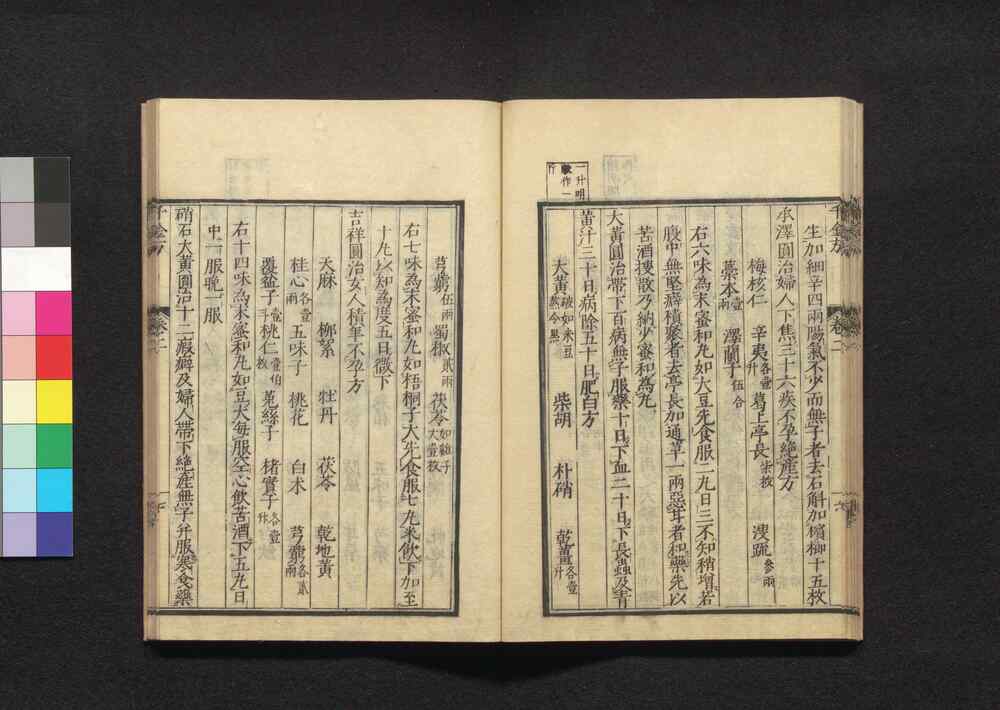 千金方 卷二 六
生加細辛四兩陽氣不少而無子者去石斛加檳榔十五枚
承澤圓治婦人下焦三十六疾不孕絕產方
梅核仁 辛夷各壹升 葛上亭長柒枚 溲疏參兩
藁本壹兩 澤蘭子伍合
右六味為末蜜和丸如大豆先食服二丸日三不知稍增若
腹中無堅癖積聚者去亭長加通草一兩惡甘者和藥先以
苦酒搜散乃納少蜜和為丸
大黃圓治帶下百病無子服藥十日下血二十日下長蟲及青
黃汁三十日病除五十日肥白方
一升明
作一
斤
大黃破如米豆熬令黑 柴胡 朴硝 乾薑各壹升
芎藭伍兩 蜀椒貳兩 茯苓如雞子大壹枚
右七味為末蜜和丸如梧桐子大先食服七丸米飲下加至
十丸以知為度五日微下
吉祥圓治女人積年不孕方
天麻 柳絮 牡丹 茯苓 乾地黃
桂心各壹兩 五味子 桃花 白朮 芎藭各貳兩
覆盆子壹斗 桃仁壹伯枚 菟絲子 楮實子各壹升
右十四味為末蜜和丸如豆大每服空心飲苦酒下五丸日
中一服晚一服
硝石大黃圓治十二瘕癖及婦人帶下絕產無子并服寒食藥
千金方 卷二